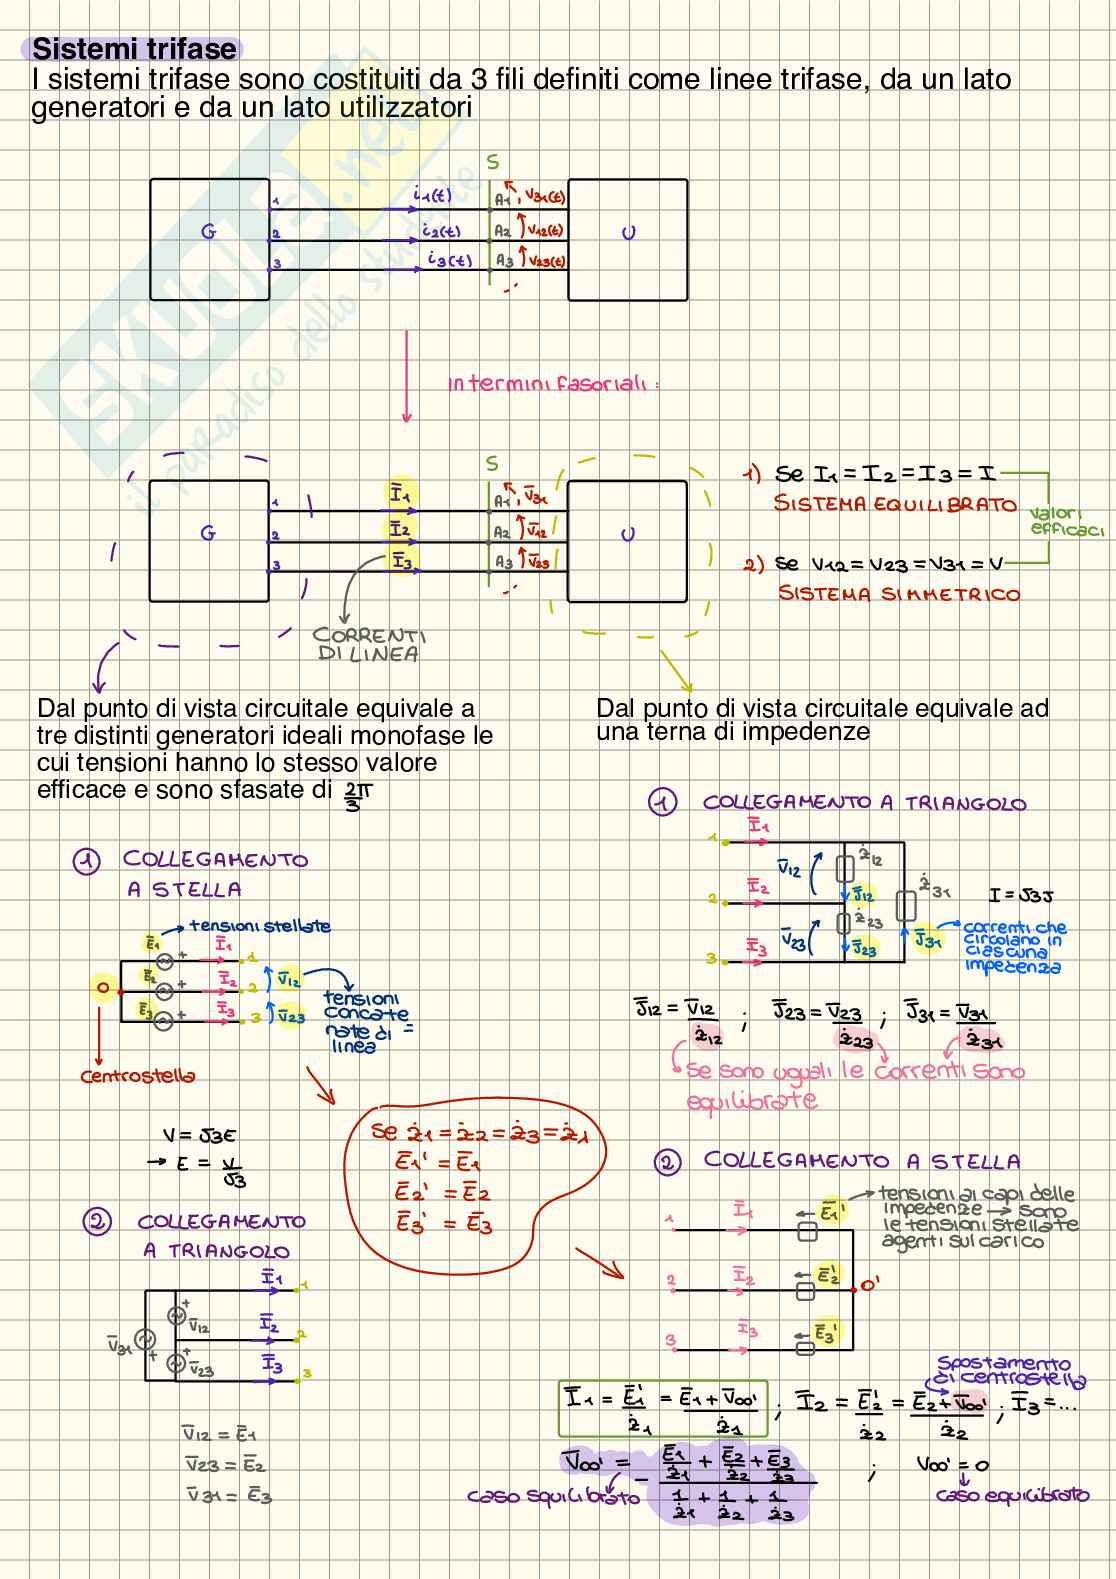 Sistemi trifase
I sistemi trifase sono costituiti da 3 fili definiti come linee trifase, da un lato
generatori e da un lato utilizzatori
SKUOLA.net
il paradiso dello studente
S
G
U
1
2
3
i1(t)
i2(t)
i3(t)
A1 V31(t)
A2 V12(t)
A3 V23(t)
in termini fasoriali:
S
G
U
1
2
3
I̅1
I̅2
I̅3
A1 V̅31
A2 V̅12
A3 V̅23
CORRENTI
DI LINEA
1) Se I1 = I2 = I3 = I
SISTEMA EQUILIBRATO
valori
efficaci
2) Se V12 = V23 = V31 = V
SISTEMA SIMMETRICO
Dal punto di vista circuitale equivale a
tre distinti generatori ideali monofase le
cui tensioni hanno lo stesso valore
efficace e sono sfasate di 2π/3
Dal punto di vista circuitale equivale ad
una terna di impedenze
1 COLLEGAMENTO
A STELLA
tensioni stellate
E̅1 + I̅1 1
E̅2 + I̅2 2
E̅3 + I̅3 3
O
V̅12
V̅23
tensioni
concate
nate di =
linea
Centrostella
V = √3E
→ E = V/√3
2 COLLEGAMENTO
A TRIANGOLO
I̅1 1
I̅2 2
I̅3 3
V̅31 +
V̅12 +
V̅23 +
V̅12 = E̅1
V̅23 = E̅2
V̅31 = E̅3
Se ż1 = ż2 = ż3 = ż1
E̅1' = E̅1
E̅2' = E̅2
E̅3' = E̅3
1 COLLEGAMENTO A TRIANGOLO
1 I̅1
2 I̅2
3 I̅3
V̅12
V̅23
ż12
ż23
ż31
J̅12
J̅23
J̅31
I = √3J
correnti che
circolano in
ciascuna
impedenza
J̅12 = V̅12/ż12 ; J̅23 = V̅23/ż23 ; J̅31 = V̅31/ż31
se sono uguali le correnti sono
equilibrate
2 COLLEGAMENTO A STELLA
1 I̅1 E̅1'
2 I̅2 E̅2'
3 I̅3 E̅3'
O'
tensioni ai capi delle
impedenze → sono
le tensioni stellate
agenti sul carico
spostamento
di centrostella
I̅1 = E̅1'/ż1 = E̅1 + V̅00'/ż1 ; I̅2 = E̅2'/ż2 = E̅2 + V̅00'/ż2 ; I̅3 = ...
V̅00' = - E̅1/ż1 + E̅2/ż2 + E̅3/ż3 / 1/ż1 + 1/ż2 + 1/ż3 ; V00' = 0
caso squilibrato
caso equilibrato